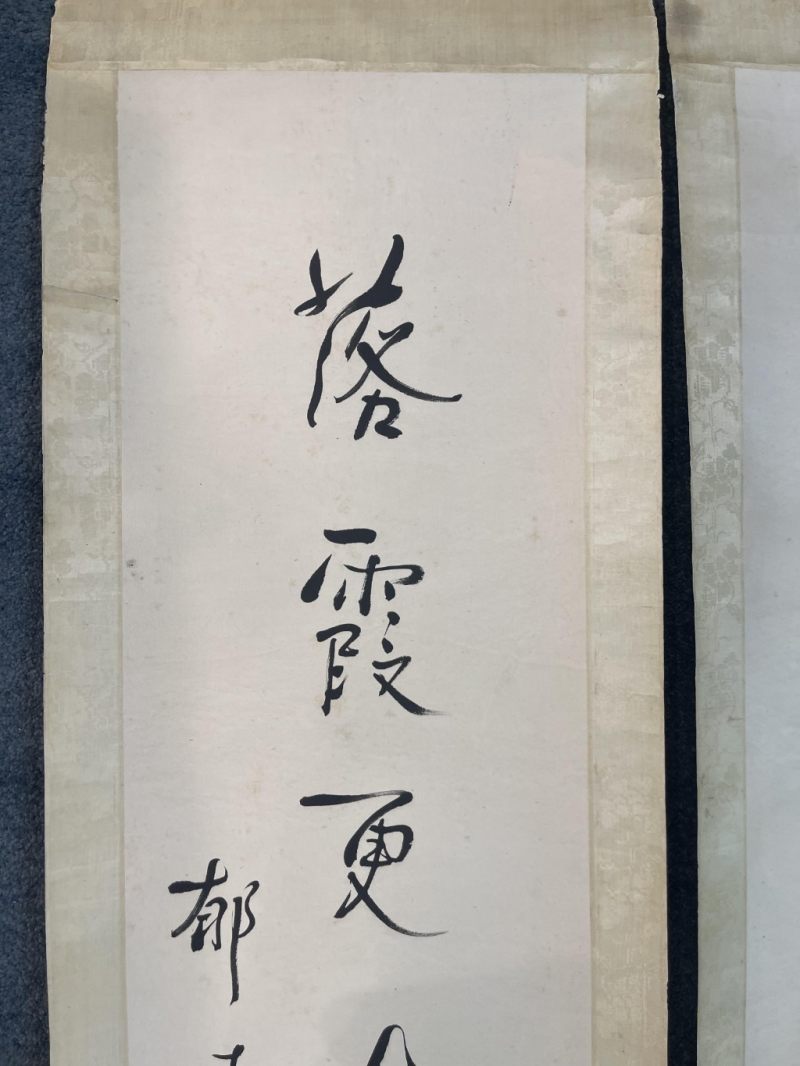 落霞更
郁